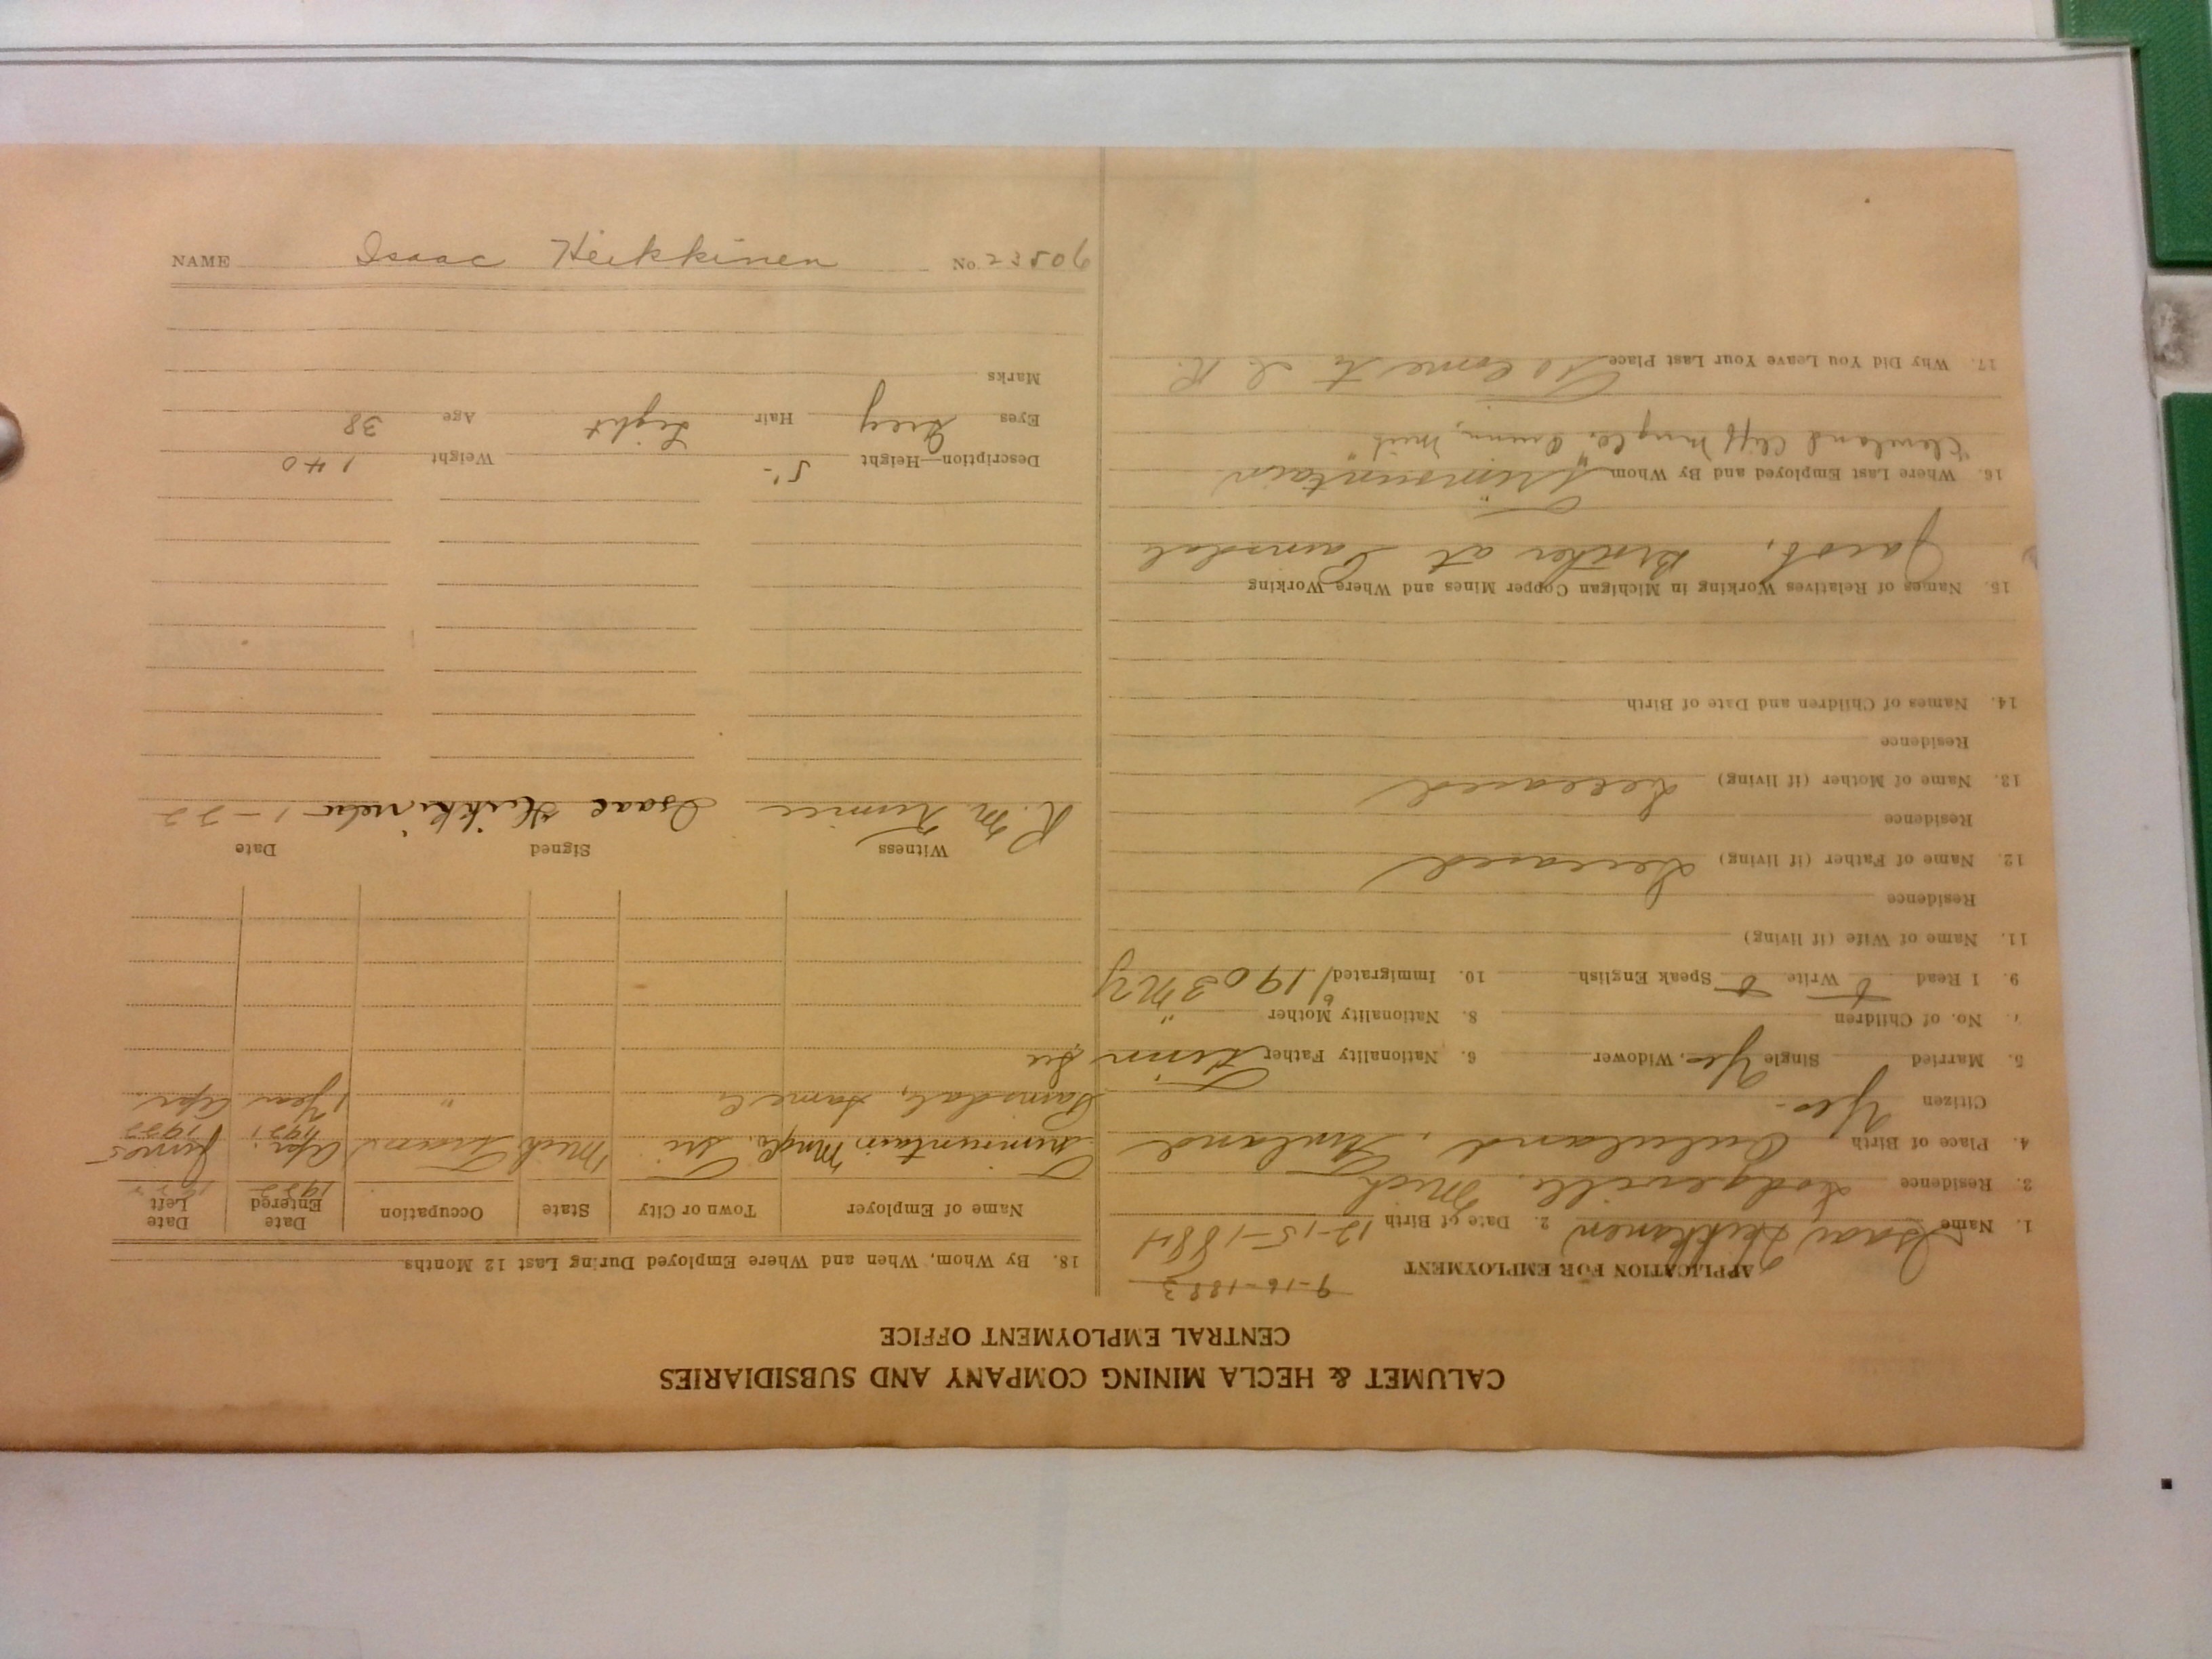 CALUMET & HECLA MINING COMPANY AND SUBSIDIARIES
CENTRAL EMPLOYMENT OFFICE
APPLICATION FOR EMPLOYMENT 9-16-1883
1. Name Isaac Heikkinen 2. Date of Birth 12-15-1884
3. Residence Dodgeville, Mich
4. Place of Birth Oululand, Finland
Citizen Yes
5. Married Single Yes, Widower 6. Nationality Father Finn
7. No. of Children 8. Nationality Mother "
9. I Read Write Speak English 10. Immigrated 1903 NY
11. Name of Wife (if living)
Residence
12. Name of Father (if living) Deceased
Residence
13. Name of Mother (if living) Deceased
Residence
14. Names of Children and Date of Birth
15. Names of Relatives Working in Michigan Copper Mines and Where Working
Jacob, Brother at Painsdale
16. Where Last Employed and By Whom "Trimountain"
Cleveland Cliff Mng Co. Mich
17. Why Did You Leave Your Last Place To Come to
18. By Whom, When and Where Employed During Last 12 Months
Name of Employer Town or City State Occupation Date Entered Date Left
Trimountain Mng Co. Tri Mich Apr. 1921 1922
Painsdale, same Co. " 1 year Apr.
Witness Signed Date
R. M. Isaac Heikkinen 1-22
Description—Height 5'- Weight 140
Eyes Grey Hair Light Age 38
Marks
NAME Isaac Heikkinen No. 23506